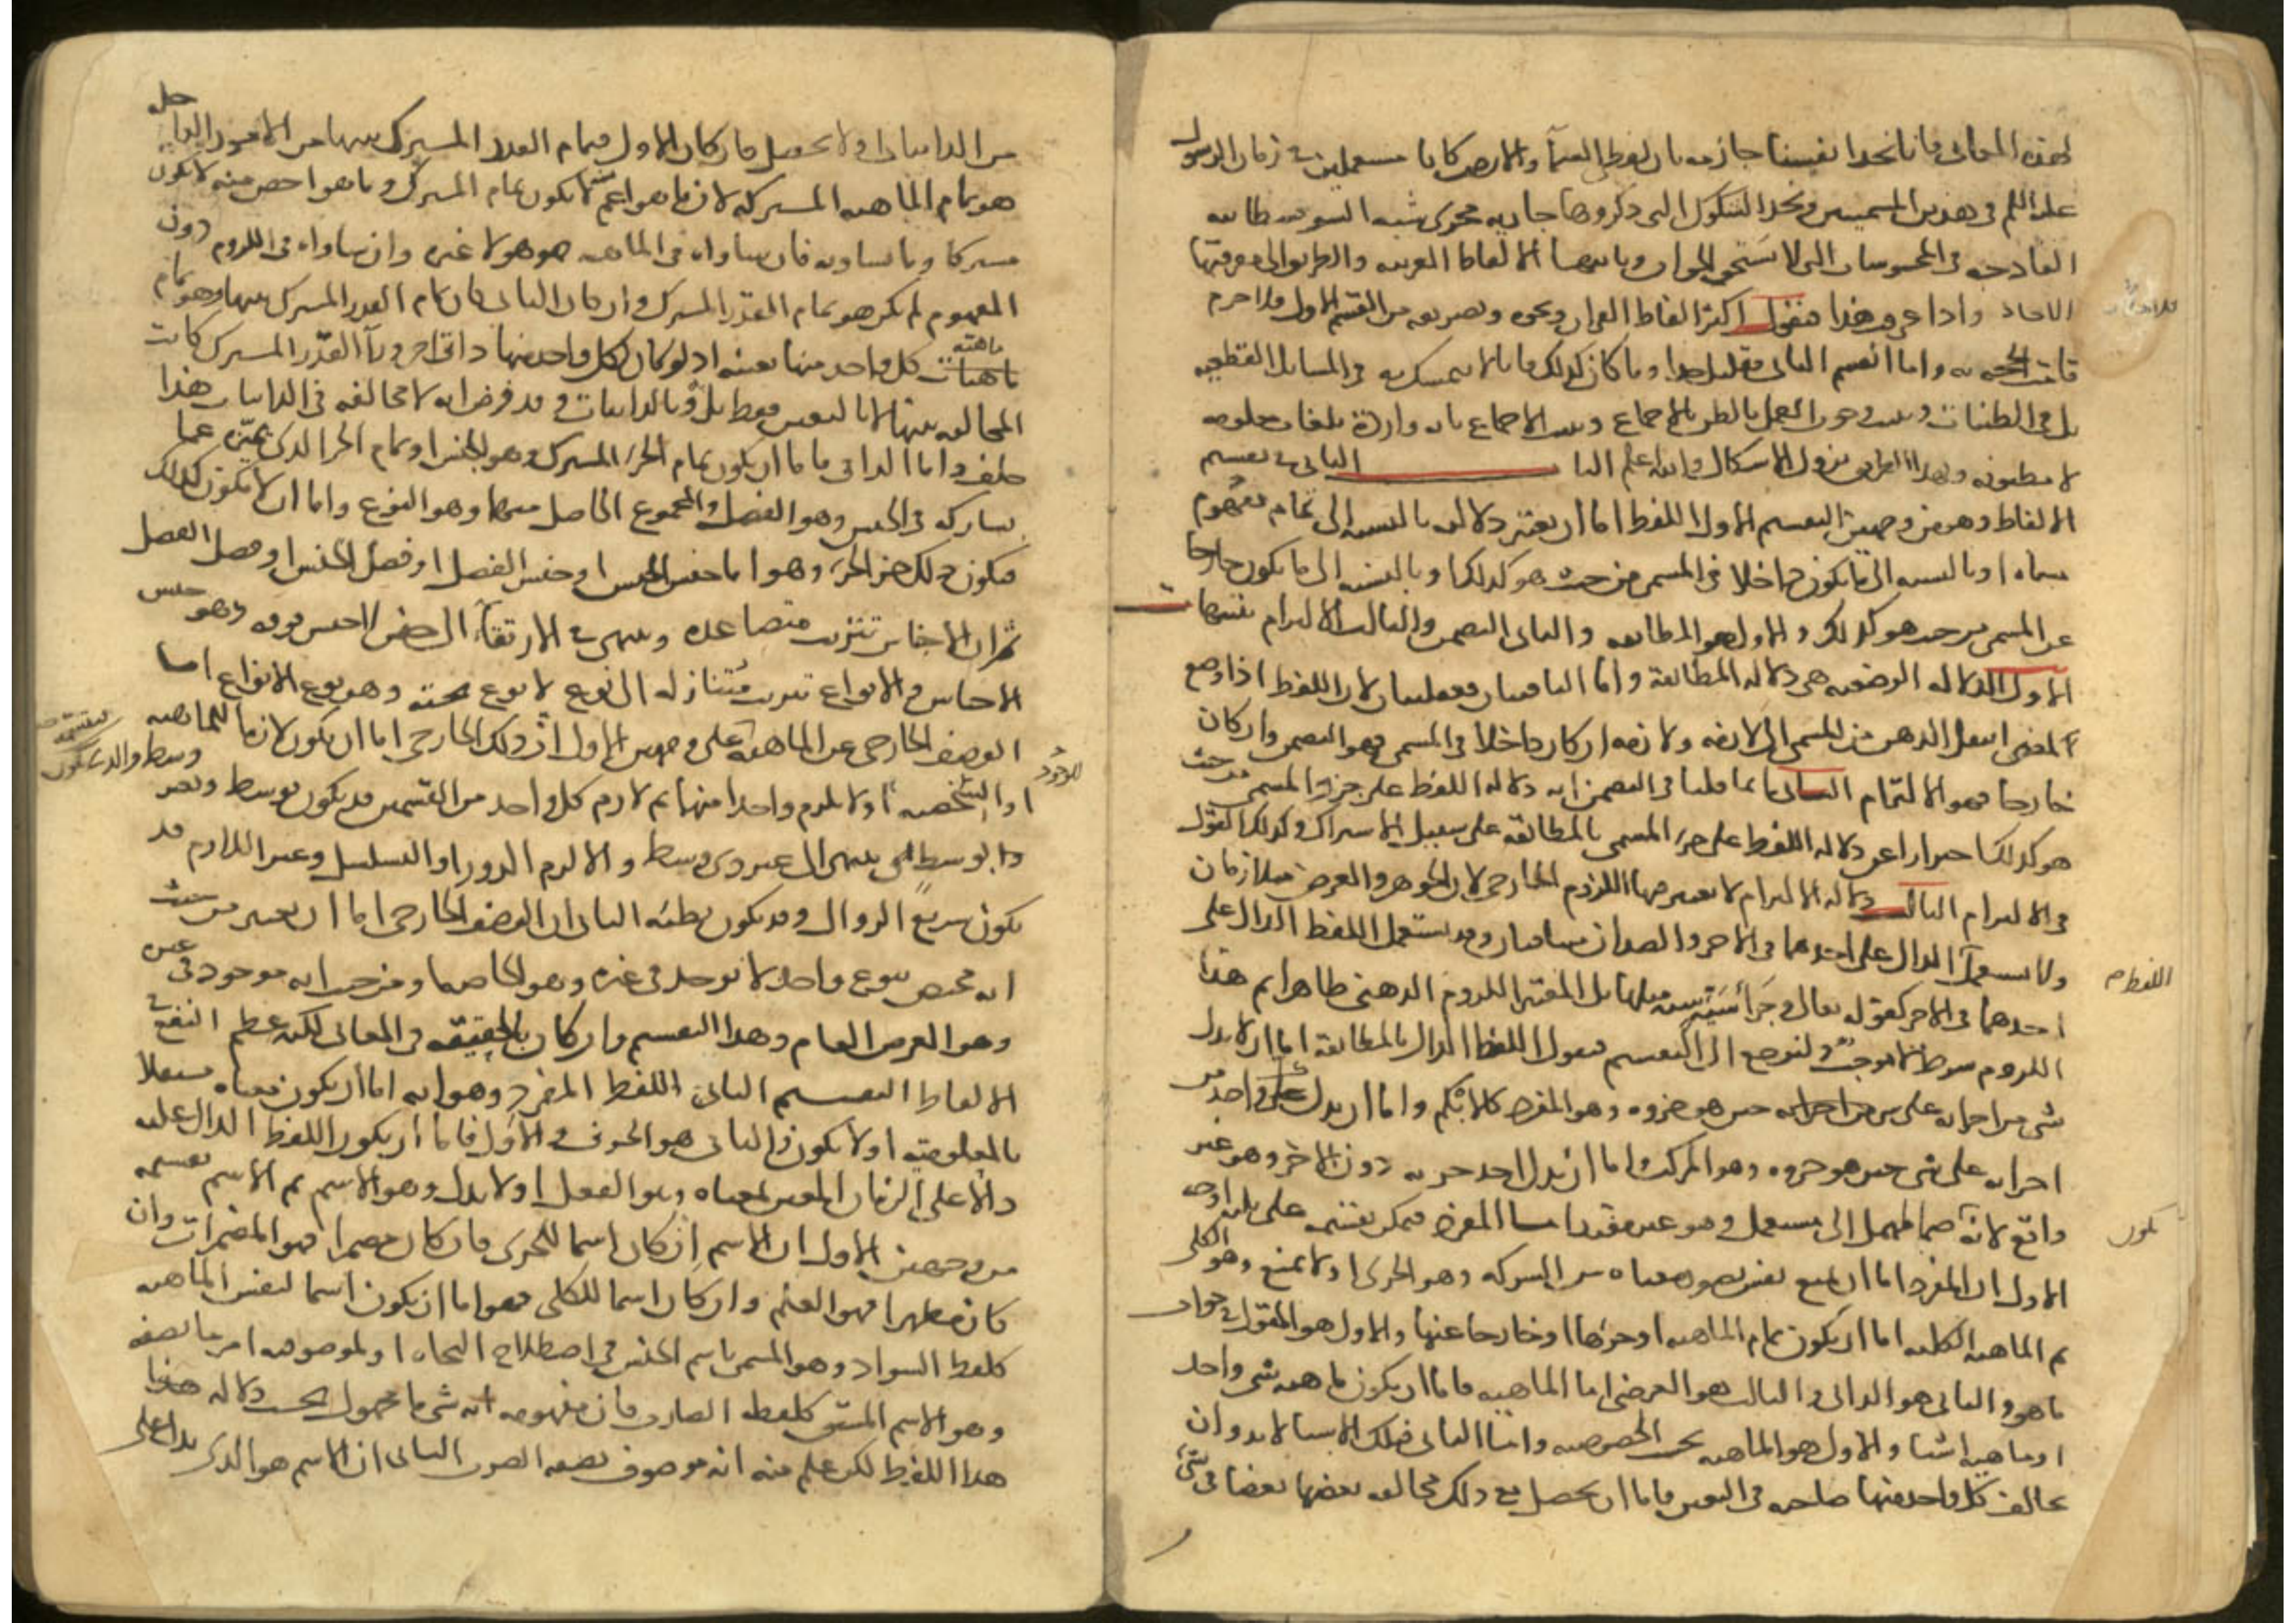 لهذه المعاني فانا نجد انفسنا جازمه بان لفظ السمآ والارض كانا مستعملين في زمان الرسول
علىه السلم في هذين المسميين ونجد الشكوك التي ذكروها جاريه مجرى شبه السوفسطائيه
القادحه في المحسوسات التي لا تستحق الجواب وثانيهما الالفاظ الغريبه والطريق الى معرفتها
الاحاد واذا عرف هذا فنقول اكثر الفاظ القران ونحوه وتصريفه من القسم الاول فلا جرم
قامت الحجه به واما القسم الثاني فقليل جدا وما كان كذلك فانا لا نتمسك به في المسائل القطعيه
بل في الظنيات ونثبت وجوب العمل بالظن بالاجماع ونثبت الاجماع بايه واردة بلغات معلومه
لا مظنونه وبهذا الطريق يزول الاشكال والله اعلم البا الثاني في تقسيم
الالفاظ وهو من وجهين التقسيم الاول اللفظ اما ان تعتبر دلالته بالنسبه الى تمام مفهوم
مسماه او بالنسبه الى ما يكون داخلا في المسمى من حيث هو كذلك او بالنسبه الى ما يكون خارجا
عن المسمى من حيث هو كذلك والاول هو المطابقه والثاني التضمن والثالث الالتزام تنبيهات
الاول الدلاله الوضعيه هي دلاله المطابقة واما الباقيتان فعقليتان لان اللفظ اذا وضع
للمعنى انتقل الذهن من المسمى الى لازمه ولازمه ان كان داخلا في المسمى فهو التضمن وان كان
خارجا فهو الالتزام الثاني انما قلنا في التضمن انه دلاله اللفظ على جزو المسمى من حيث
هو كذلك احترازا عن دلاله اللفظ على جزء المسمى بالمطابقه على سبيل الاشتراك وكذلك القول
في الالتزام الثالث دلاله الالتزام لا يعتبر فيها اللزوم الخارجي لان الجوهر والعرض متلازمان
ولا يستعمل الدال على احدهما في الاخر والضدان متنافيان وقد يستعمل اللفظ الدال على
اللفظ م
احدهما في الاخر كقوله تعالى وجزآ سيئة سيئة مثلها بل المعتبر اللزوم الذهني ظاهرا ثم هذا
اللزوم شرط لا موجب ولنرجع الى التقسيم فنقول اللفظ الدال بالمطابقة اما ان لا يدل
شي من اجزائه على شي من اجزائه حين هو جزوه وهو المفرد كالابكم واما ان يدل كل واحد من
اجزائه على شي حين هو جزوه وهو المركب واما ان يدل احد جزيه دون الاخر وهو غير
واقع لانه ضم المهمل الى مستعمل وهو غير مفيد اما المفرد فيمكن تقسيمه على ثلثه اوجه
يكون
الاول ان المفرد اما ان يمنع نفس تصور معناه من الشركه وهو الجزئي او لا يمنع وهو الكلي
ثم الماهيه الكليه اما ان يكون تمام الماهيه او جزءها او خارجا عنها والاول هو المقول في جواب
ما هو والثاني هو الذاتي والثالث هو العرضي اما الماهيه فاما ان يكون ماهيه شي واحد
او ماهيه اشيا والاول هو الماهيه بحسب الخصوصيه واما الثاني فتلك الاشيا لابد وان
يخالف كل واحد منها صاحبه في التعين فاما ان يحصل مع ذلك مخالفه بعضها بعضا في شي
من الذاتيات او لا يحصل فان كان الاول فتمام القدر المشترك بينها من الامور الداخله
هو تمام الماهيه المشتركه لان ما هو اعم منه لا يكون تمام المشترك وما هو اخص منه لا يكون
مشتركا وما يساويه فان ساواه في الماهيه فهو هو لا غيره وان ساواه في اللزوم دون
المفهوم لم يكن هو تمام القدر المشترك وان كان الثاني كان تمام القدر المشترك بينها وهو تمام
ماهيته
ماهيات كل واحد منها بعينه اذ لو كان لكل واحد منها ذاتي اخر ورآ القدر المشترك كانت
المخالفه بينها لا بالتعين فقط بل وبالذاتيات وقد فرض انه لا مخالفه في الذاتيات هذا
خلف واما الذاتي فاما ان يكون تمام الجزء المشترك وهو الجنس او تمام الجزء الذي يميزه عما
يشاركه في الجنس وهو الفصل والمجموع الحاصل منهما وهو النوع واما ان لا يكون كذلك
فيكون ذلك جزء الجزء وهو اما جنس الجنس او جنس الفصل او فصل الجنس او فصل الفصل
ثم ان الاجناس تترتب متصاعدة وينتهي في الارتقاء الى جنس لا جنس فوقه وهو جنس
الاجناس والانواع تترتب متنازله الى نوع لا نوع تحته وهو نوع الانواع اما
الوصف الخارجي عن الماهيه فعلى وجهين الاول ان ذلك الخارجي اما ان يكون لازما للماهيه
للوجود
او الشخصيه او لا يلزم واحدا منها ثم لازم كل واحد من القسمين قد يكون بوسط وبغير
وسط والذي يكون
ذا الوسط ينتهي الى غير ذي وسط والا لزم الدور او التسلسل وغير اللازم قد
يكون سريع الزوال وقد يكون بطيئه الثاني ان الوصف الخارجي اما ان يعتبر من حيث
انه مختص بنوع واحد لا يوجد في غيره وهو الخاصه او من حيث انه موجود في غيره
وهو العرض العام وهذا التقسيم وان كان بالحقيقه في المعاني لكنه عظيم النفع في
الالفاظ التقسيم الثاني اللفظ المفرد وهو انه اما ان يكون معناه مستقلا
بالمعلوميه او لا يكون والثاني هو الحرف والاول فاما ان يكون اللفظ الدال عليه
دالا على الزمان المعين لمعناه وهو الفعل او لا يدل وهو الاسم ثم الاسم تقسيمه
من وجهين الاول ان الاسم ان كان اسما للجزئي فان كان مضمرا فهو المضمرات وان
كان مظهرا فهو العلم وان كان اسما للكلي فهو اما ان يكون اسما لنفس الماهيه
كلفظ السواد وهو المسمى باسم الجنس في اصطلاح النحاه او لموصوفيه امر ما بصفه
وهو الاسم المشتق كلفظه الضارب فان مفهومه انه شي ما مجهول بحسب دلاله هذا
هذا اللفظ لكن علم منه انه موصوف بصفه الضرب الثاني ان الاسم هو الذي يدل على